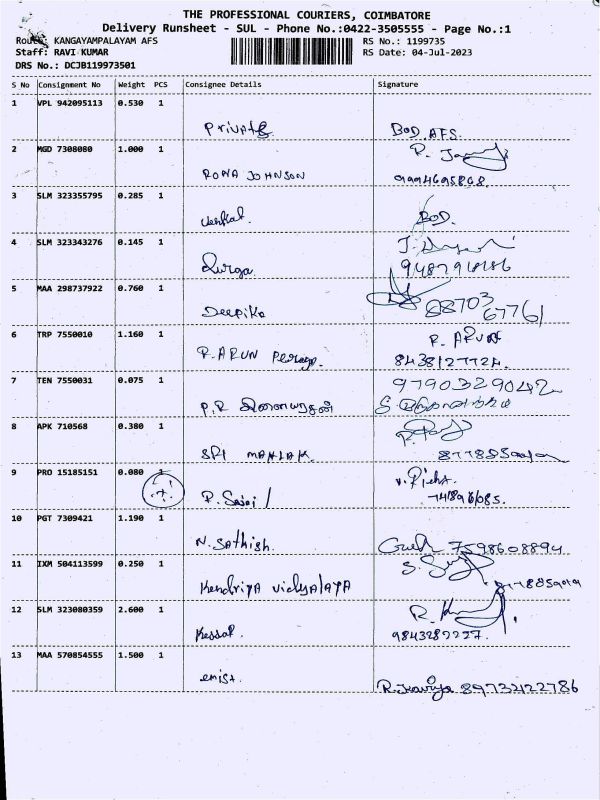 THE PROFESSIONAL COURIERS, COIMBATORE
Delivery Runsheet - SUL - Phone No.:0422-3505555 - Page No.:1
Route: KANGAYAMPALAYAM AFS
RS No.: 1199735
Staff: RAVI KUMAR
RS Date: 04-Jul-2023
DRS No.: DCJB119973501
S No Consignment No Weight PCS Consignee Details Signature
1 VPL 942095113 0.530 1
Private BOD AFS.
2 MGD 7308080 1.000 1
RONA JOHNSON 9994695868.
3 SLM 323355795 0.285 1
Venkat. BOD.
4 SLM 323343276 0.145 1
Durga
5 MAA 298737922 0.760 1
Deepika 88703
67761
6 TRP 7550010 1.160 1
R. ARUN R. ARUN
8438127724.
7 TEN 7550031 0.075 1
P.R 9790329042
8 APK 710568 0.380 1
SRI
9 PRO 15185151 0.080 1
P. Sajai
10 PGT 7309421 1.190 1
N. Sathish. 7598608894
11 IXM 504113599 0.250 1
Kendriya vidyalaya
12 SLM 323080359 2.600 1
9843282227.
13 MAA 570854555 1.500 1
R. 89732122786